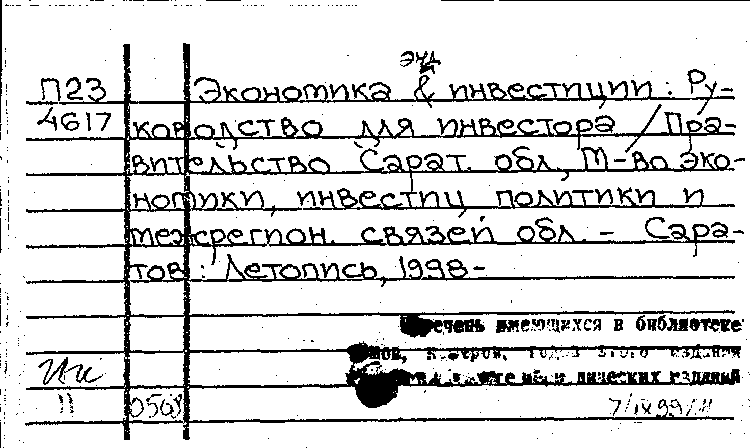 энд
П23 Экономика & инвестиции : Ру-
4617 ководство для инвестора / Пра-
вительство Сарат. обл., М-во эко-
номики, инвестиц. политики и
межрегион. связей обл. - Сара-
тов : Летопись, 1998-
Перечень имеющихся в библиотеке
томов, номеров, годов этого издания
изданий
11 0568 7/IX 99/11